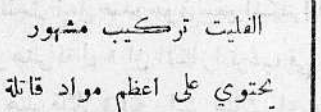 الفليت تركيب مشهور
يحتوي على اعظم مواد قاتلة